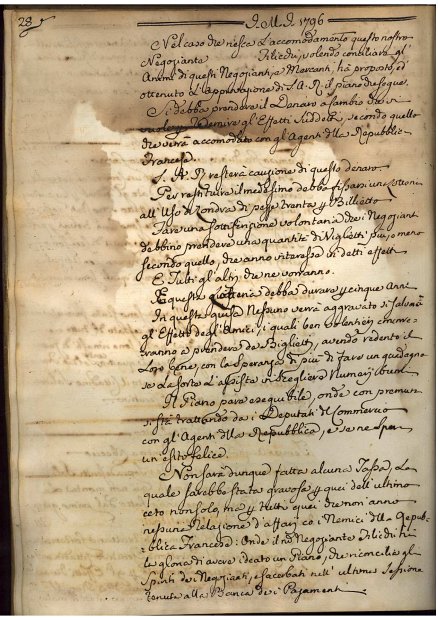 28
I.M.I. 1796
Nel caso che riesca l'accomodamento questo nostro
Negoziante Filicchi, volendo conciliare gl'
Animi di questi Negozianti, e Mercanti, ha proposto, ed
ottenuto l'Approvazione di S. A. R. il piano che segue.
Si debba prendere il Denaro a Cambio che si
gl'Effetti Suddetti, secondo quello
che verrà accomodato con gl'Agenti della Repubblica
Francese.
S. A. R. resterà cauzione di questo denaro
Per restituire il medesimo debba fissarsi una
all'Uso di Londra di pezze trenta p Biglietto
Fare una sottoscrizione volontaria che i Negozianti
debbino prendere una quantità di Viglietti più, o meno
secondo quello, che anno interesse in detti effetti
E Tutti gl'altri che ne vorranno.
E questa debba durare p cinque Anni
In questa guisa Nessuno verrà aggravato si salvano
gl'Effetti degl'Amici, i quali ben volentieri
a prendere de Biglietti, avendo redento il
Loro bene, con la Speranza di più di fare un guadagno
se la sorte l'assista in scegliere Numeri buoni
Il Piano pare eseguibile, onde con premura
si stà trattando da i Deputati di Commercio
con gl'Agenti della Repubblica, e se ne spera
un esito felice.
Non sarà dunque fatta alcuna Tassa, la
quale sarebbe stata gravosa p quei dell'ultimo
ceto non solo, ma p tutti quei che non anno
nessuna Relazione d'affari co i Nemici della Repub-
blica Francese: Onde il no Negoziante Filicchi ha
la gloria di avere ideato un Piano, che riconcilia gl'
Spiriti de i Negozianti, esacerbati nell'ultima Sessione
tenuta alla Banca de i Pagamenti